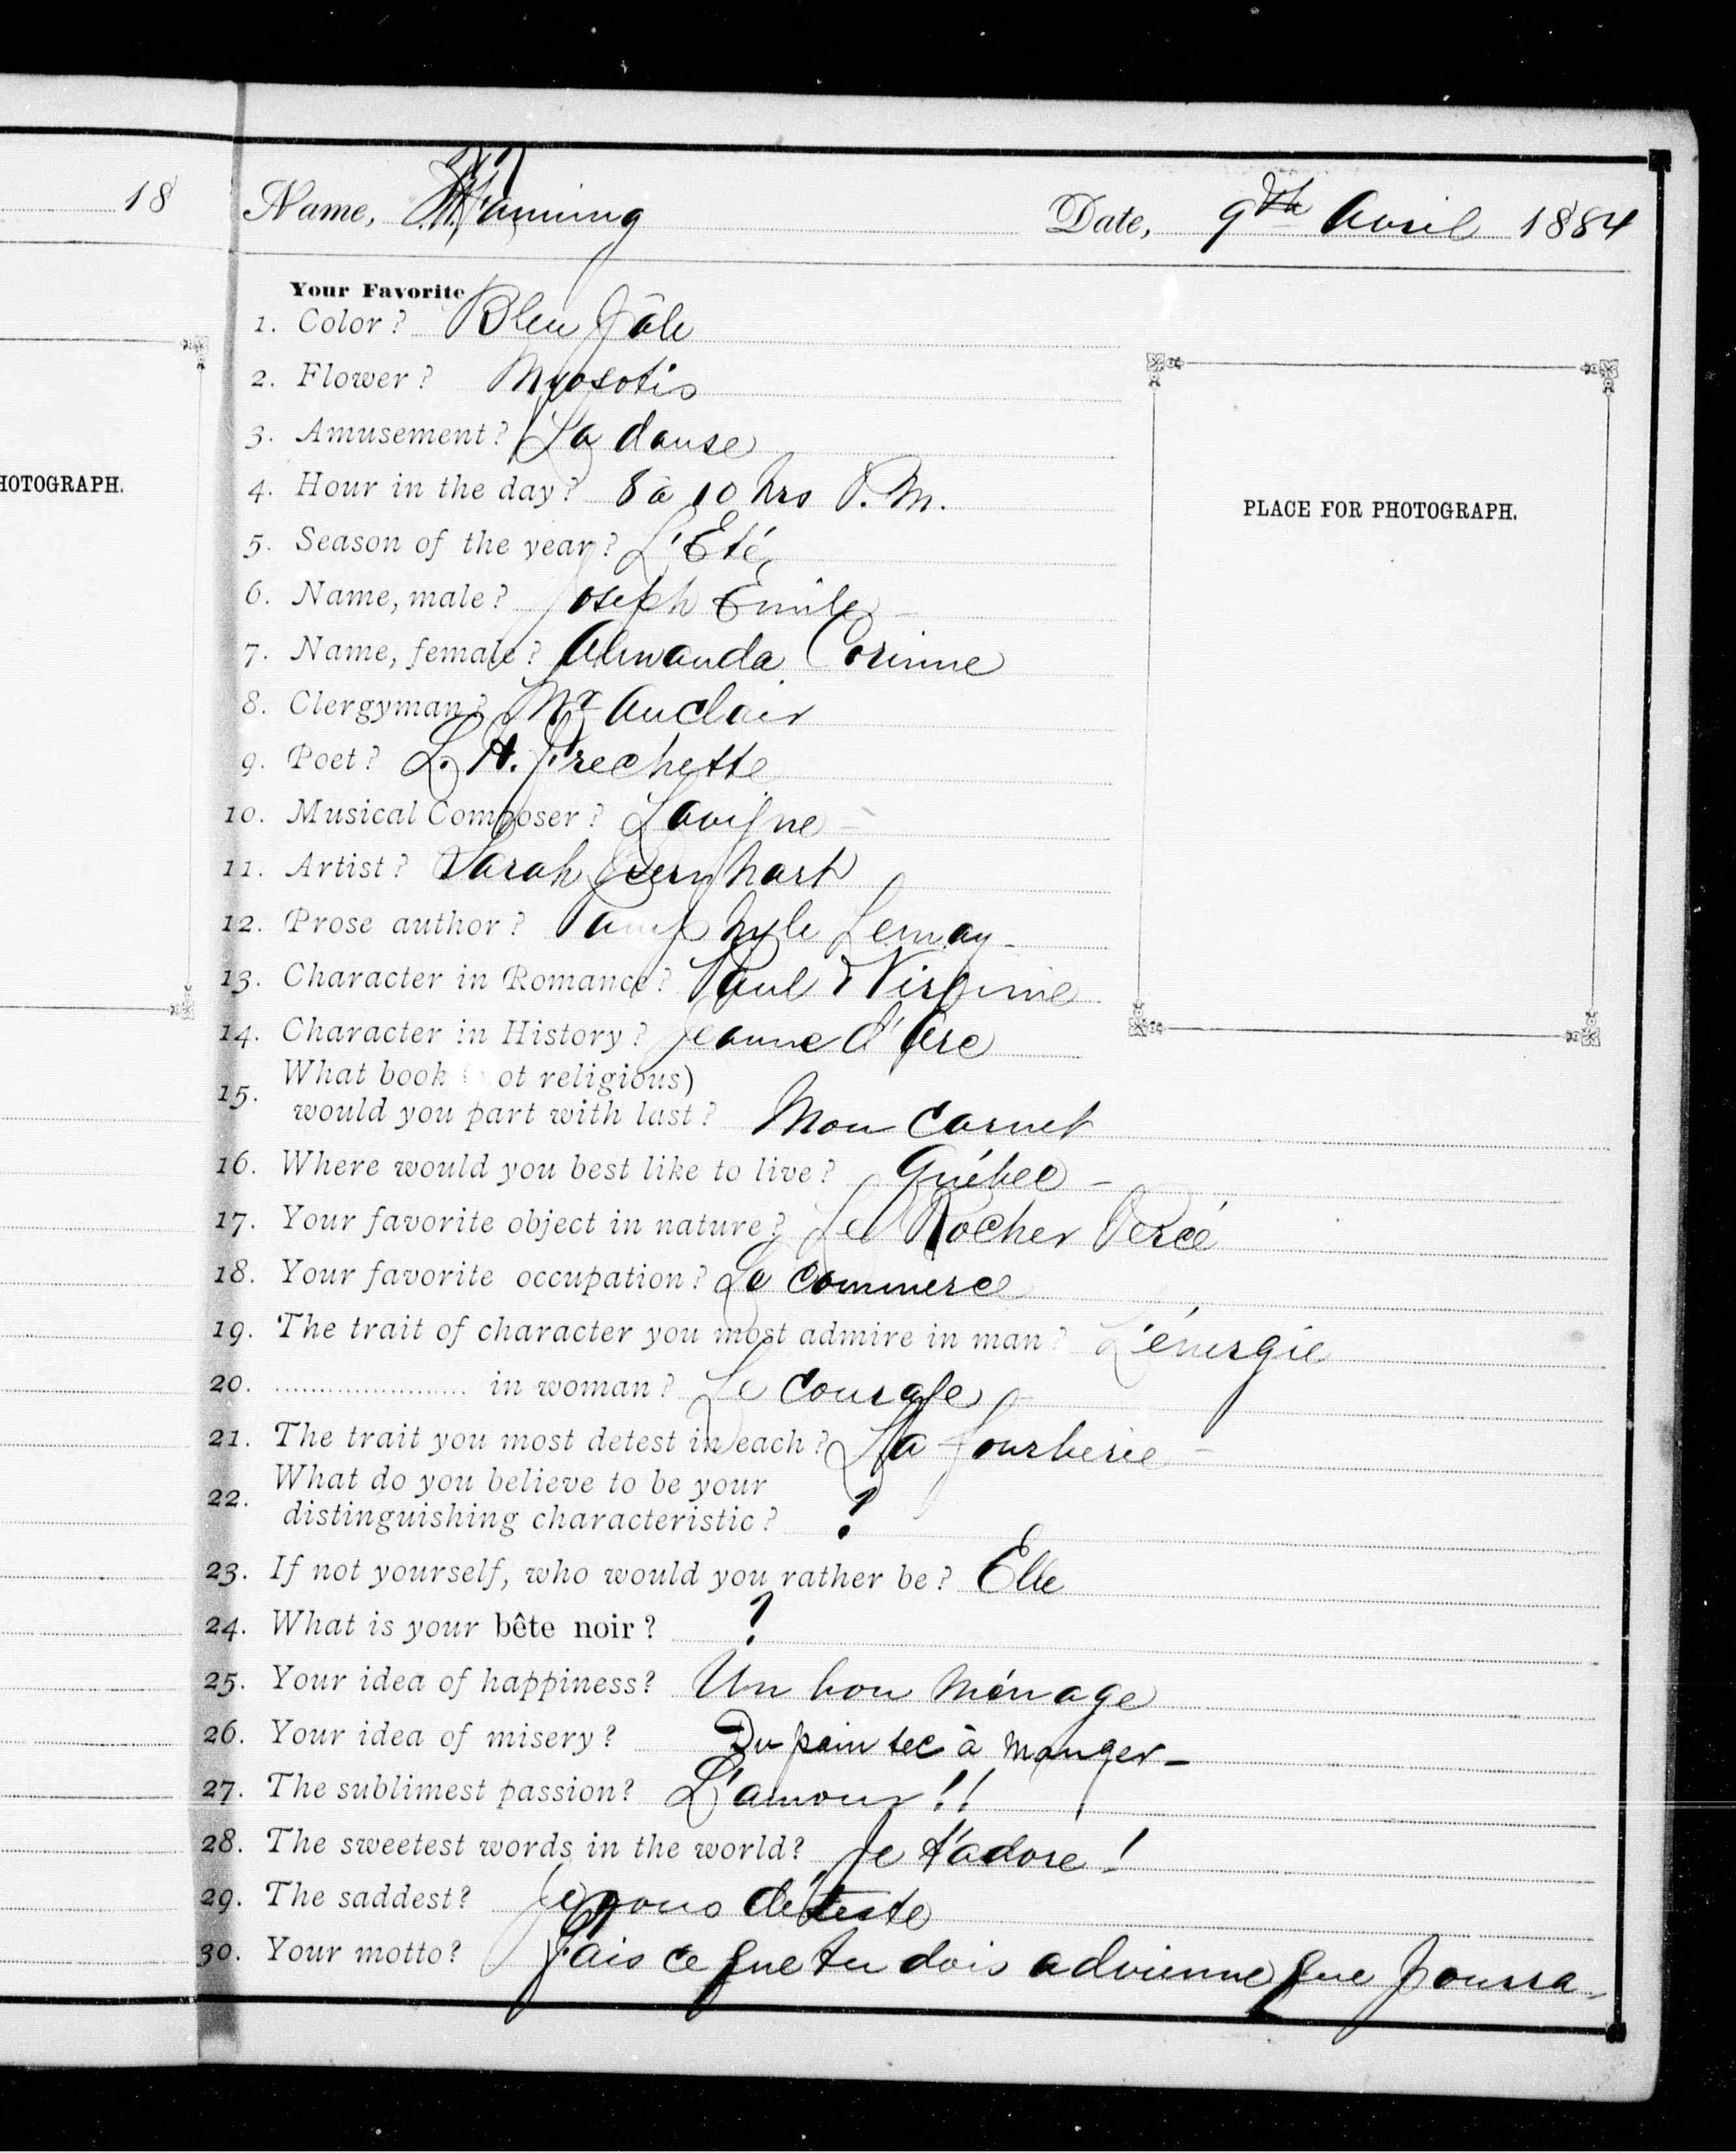 18
HOTOGRAPH.
Name, Fanning Date, 9th Avril 1884
Your Favorite
1. Color? Bleu pâle
2. Flower? Myosotis
3. Amusement? La danse
4. Hour in the day? 8 à 10 hrs P.M.
5. Season of the year? L'Eté
6. Name, male? Joseph Emile
7. Name, female? Alwanda Corinne
8. Clergyman? Mr Auclair
9. Poet? L. H. Frechette
10. Musical Composer? Lavigne
11. Artist? Sarah Bernhart
12. Prose author? Pamphyle Lemay
13. Character in Romance? Paul & Virginie
14. Character in History? Jeanne d'Arc
15. What book ot religious)
would you part with last? Mon Carnet
16. Where would you best like to live? Québec
17. Your favorite object in nature? Le Rocher Percé
18. Your favorite occupation? Le Commerce
19. The trait of character you most admire in man? L'énergie
20. in woman? Le Courage
21. The trait you most detest in each? La fourberie
22. What do you believe to be your
distinguishing characteristic? ?
23. If not yourself, who would you rather be? Elle
24. What is your bête noir? ?
25. Your idea of happiness? Un bon ménage
26. Your idea of misery? Du pain sec à manger
27. The sublimest passion? L'amour!!
28. The sweetest words in the world? Je t'adore!
29. The saddest? Je vous déteste
30. Your motto? Fais ce que tu dois advienne que pourra
PLACE FOR PHOTOGRAPH.